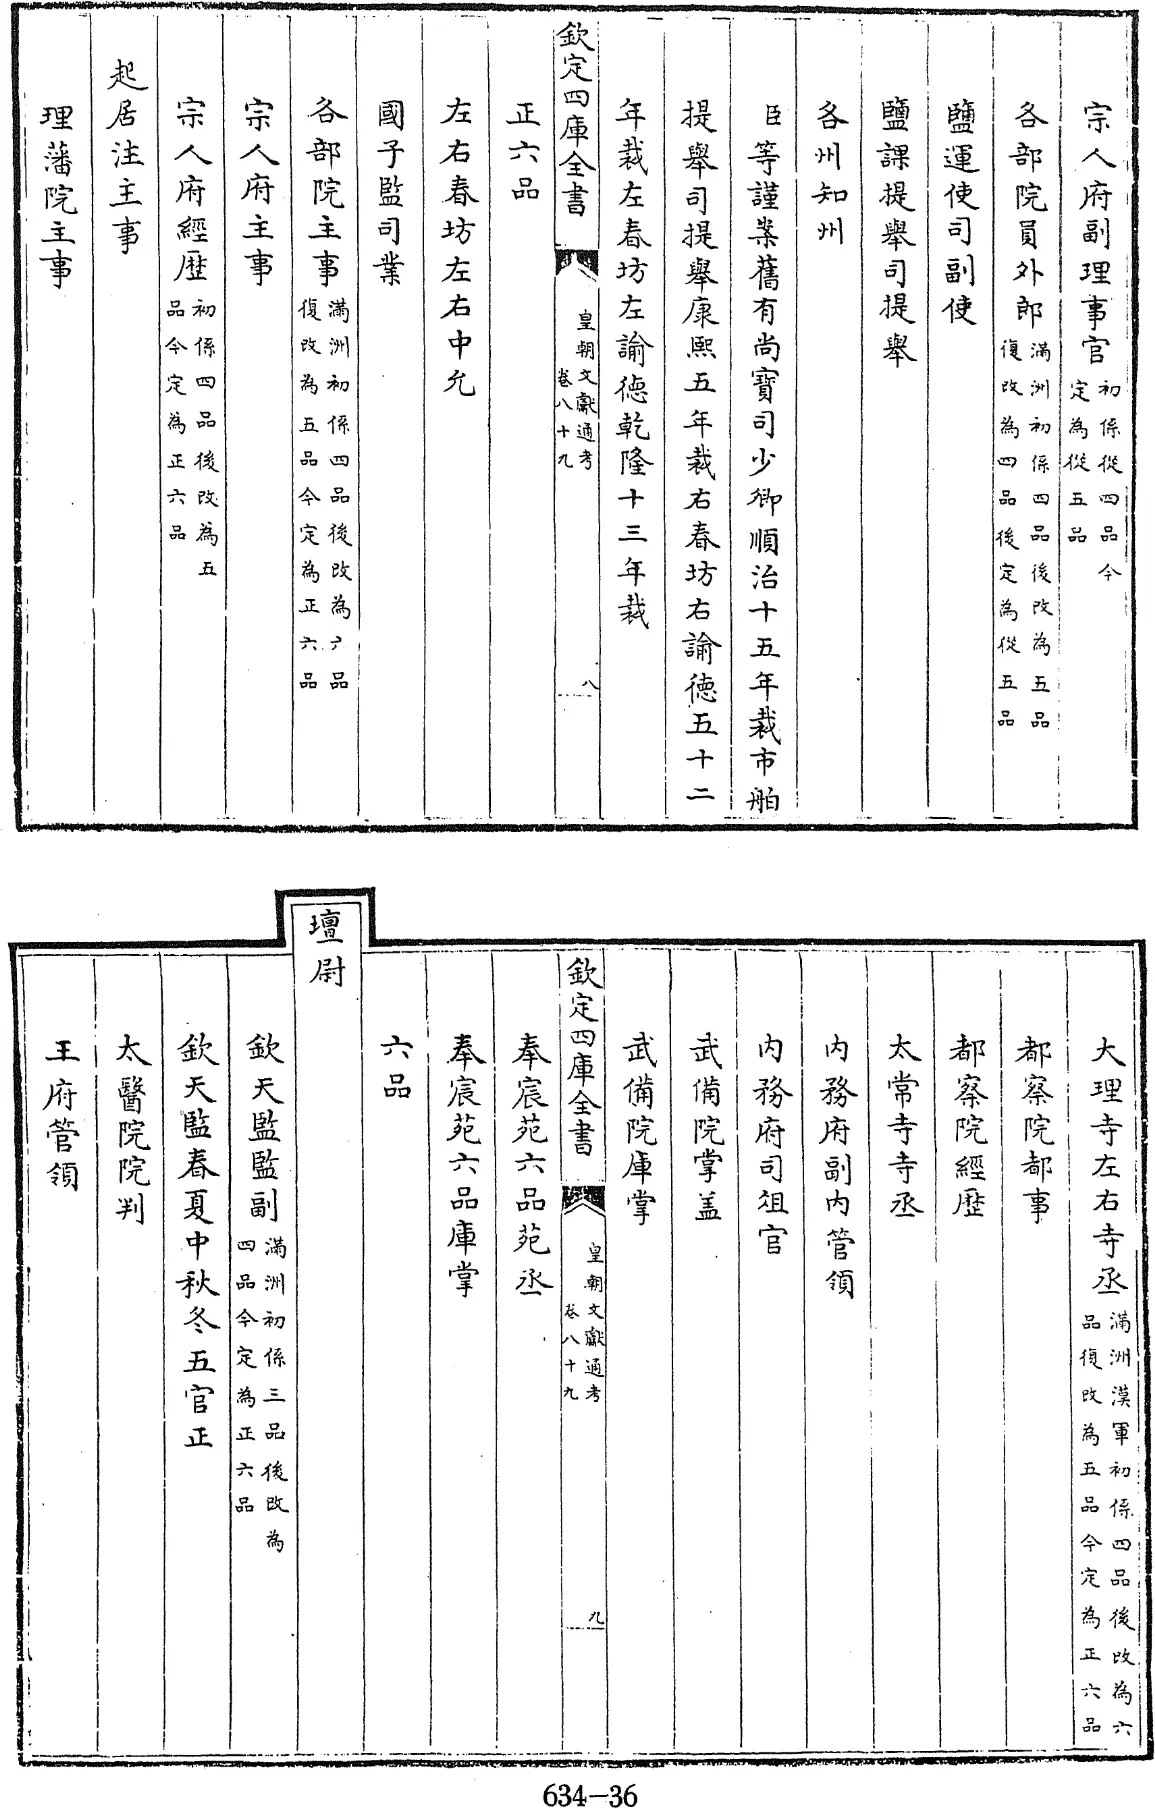 宗人府副理事官初係從四品今定為從五品
各部院員外郎滿洲初係四品後改為五品復改為四品後定為從五品
鹽運使司副使
鹽課提舉司提舉
各州知州
臣等謹案舊有尚寶司少卿順治十五年裁市舶
提舉司提舉康熙五年裁右春坊右諭徳五十二
年裁左春坊左諭徳乾隆十三年裁
欽定四庫全書 皇朝文獻通考卷八十九 八
正六品
左右春坊左右中允
國子監司業
各部院主事滿洲初係四品後改為六品復改為五品今定為正六品
宗人府主事
宗人府經歴初係四品後改為五品今定為正六品
起居注主事
理藩院主事
大理寺左右寺丞滿洲漢軍初係四品後改為六品復改為五品今定為正六品
都察院都事
都察院經歴
太常寺寺丞
内務府副内管領
内務府司俎官
武備院掌盖
武備院庫掌
欽定四庫全書 皇朝文獻通考卷八十九 九
奉宸苑六品苑丞
奉宸苑六品庫掌
六品
壇尉
欽天監監副滿洲初係三品後改為四品今定為正六品
欽天監春夏中秋冬五官正
太醫院院判
王府管領
634-36